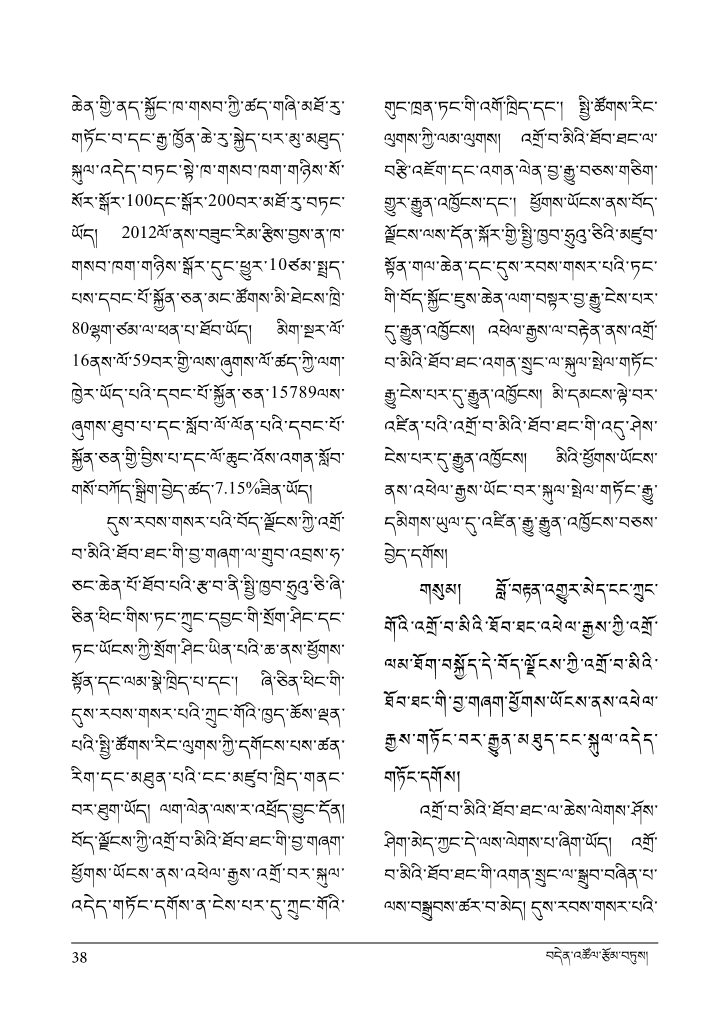 ཆེན་གྱི་ནད་སྐྱོང་ཁ་གསབ་ཀྱི་ཚད་གཞི་མཐོ་རུ་
གཏོང་བ་དང་རྒྱ་ཁྱོན་ཆེ་རུ་སྐྱེད་པར་མུ་མཐུད་
སྐུལ་འདེད་བཏང་སྟེ་ཁ་གསབ་ཁག་གཉིས་སོ་
སོར་སྒོར་100དང་སྒོར་200བར་མཐོ་རུ་བཏང་
ཡོད། 2012ལོ་ནས་བཟུང་རིམ་རྩིས་བྱས་ན་ཁ་
གསབ་ཁག་གཉིས་སྒོར་དུང་ཕྱུར་10ཙམ་སྤྲད་
པས་དབང་པོ་སྐྱོན་ཅན་མང་ཚོགས་མི་ཐེངས་ཁྲི་
80ལྷག་ཙམ་ལ་ཕན་པ་ཐོབ་ཡོད། མིག་སྔར་ལོ་
16ནས་ལོ་59བར་གྱི་ལས་ཞུགས་ལོ་ཚད་ཀྱི་ལག་
ཁྱེར་ཡོད་པའི་དབང་པོ་སྐྱོན་ཅན་15789ལས་
ཞུགས་ཐུབ་པ་དང་སློབ་ལོ་ལོན་པའི་དབང་པོ་
སྐྱོན་ཅན་གྱི་བྱིས་པ་དང་ལོ་ཆུང་འོས་འགན་སློབ་
གསོ་བཀོད་སྒྲིག་བྱེད་ཚད་7.15%ཟིན་ཡོད།
དུས་རབས་གསར་པའི་བོད་ལྗོངས་ཀྱི་འགྲོ་
བ་མིའི་ཐོབ་ཐང་གི་བྱ་གཞག་ལ་གྲུབ་འབྲས་ཧ་
ཅང་ཆེན་པོ་ཐོབ་པའི་རྩ་བ་ནི་སྤྱི་ཁྱབ་ཧྲུའུ་ཅི་ཞི་
ཅིན་ཕིང་གིས་ཏང་ཀྲུང་དབྱང་གི་སྲོག་ཤིང་དང་
ཏང་ཡོངས་ཀྱི་སྲོག་ཤིང་ཡིན་པའི་ཆ་ནས་ཕྱོགས་
སྟོན་དང་ལམ་སྣེ་ཁྲིད་པ་དང་། ཞི་ཅིན་ཕིང་གི་
དུས་རབས་གསར་པའི་ཀྲུང་གོའི་ཁྱད་ཆོས་ལྡན་
པའི་སྤྱི་ཚོགས་རིང་ལུགས་ཀྱི་དགོངས་པས་ཚན་
རིག་དང་མཐུན་པའི་ངང་མཛུབ་ཁྲིད་གནང་
བར་ཐུག་ཡོད། ལག་ལེན་ལས་ར་འཕྲོད་བྱུང་དོན།
བོད་ལྗོངས་ཀྱི་འགྲོ་བ་མིའི་ཐོབ་ཐང་གི་བྱ་གཞག་
ཕྱོགས་ཡོངས་ནས་འཕེལ་རྒྱས་འགྲོ་བར་སྐུལ་
འདེད་གཏོང་དགོས་ན་ངེས་པར་དུ་ཀྲུང་གོའི་
གུང་ཁྲན་ཏང་གི་འགོ་ཁྲིད་དང་། སྤྱི་ཚོགས་རིང་
ལུགས་ཀྱི་ལམ་ལུགས། འགྲོ་བ་མིའི་ཐོབ་ཐང་ལ་
བརྩི་འཇོག་དང་འགན་ལེན་བྱ་རྒྱུ་བཅས་གཅིག་
གྱུར་རྒྱུན་འཁྱོངས་དང་། ཕྱོགས་ཡོངས་ནས་བོད་
ལྗོངས་ལས་དོན་སྐོར་གྱི་སྤྱི་ཁྱབ་ཧྲུའུ་ཅིའི་མཛུབ་
སྟོན་གལ་ཆེན་དང་དུས་རབས་གསར་པའི་ཏང་
གི་བོད་སྐྱོང་ཇུས་ཆེན་ལག་བསྟར་བྱ་རྒྱུ་ངེས་པར་
དུ་རྒྱུན་འཁྱོངས། འཕེལ་རྒྱས་ལ་བརྟེན་ནས་འགྲོ་
བ་མིའི་ཐོབ་ཐང་འགན་སྲུང་ལ་སྐུལ་སྤེལ་གཏོང་
རྒྱུ་ངེས་པར་དུ་རྒྱུན་འཁྱོངས། མི་དམངས་ལྟེ་བར་
འཛིན་པའི་འགྲོ་བ་མིའི་ཐོབ་ཐང་གི་འདུ་ཤེས་
ངེས་པར་དུ་རྒྱུན་འཁྱོངས། མིའི་ཕྱོགས་ཡོངས་
ནས་འཕེལ་རྒྱས་ཡོང་བར་སྐུལ་སྤེལ་གཏོང་རྒྱུ་
དམིགས་ཡུལ་དུ་འཛིན་རྒྱུ་རྒྱུན་འཁྱོངས་བཅས་
བྱེད་དགོས།
གསུམ། བློ་བརྟན་འགྱུར་མེད་ངང་ཀྲུང་
གོའི་འགྲོ་བ་མིའི་ཐོབ་ཐང་འཕེལ་རྒྱས་ཀྱི་འགྲོ་
ལམ་ཐོག་བསྐྱོད་དེ་བོད་ལྗོངས་ཀྱི་འགྲོ་བ་མིའི་
ཐོབ་ཐང་གི་བྱ་གཞག་ཕྱོགས་ཡོངས་ནས་འཕེལ་
རྒྱས་གཏོང་བར་རྒྱུན་མཐུད་ངང་སྐུལ་འདེད་
གཏོང་དགོས།
འགྲོ་བ་མིའི་ཐོབ་ཐང་ལ་ཆེས་ལེགས་ཤོས་
ཤིག་མེད་ཀྱང་དེ་ལས་ལེགས་པ་ཞིག་ཡོད། འགྲོ་
བ་མིའི་ཐོབ་ཐང་གི་འགན་སྲུང་ལ་སྒྲུབ་བཞིན་པ་
ལས་བསྒྲུབས་ཚར་བ་མེད། དུས་རབས་གསར་པའི་
38 བདེན་འཚོལ་རྩོམ་བཏུས།